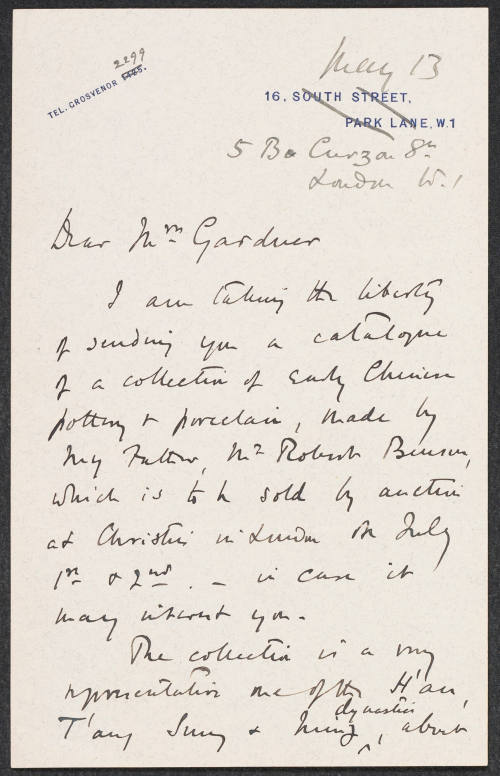 May 13
2299
TEL. GROSVENOR 1485.
16, SOUTH STREET,
PARK LANE, W.1
5 Curzon St
London W.1
Dear Mrs Gardner
I am taking the liberty
of sending you a catalogue
of a collection of early Chinese
pottery & porcelain, made by
my Father, Mr Robert Benson,
which is to be sold by auction
at Christies in London on July
1st & 2nd. – in case it
may interest you.
The collection is a very
representative one of the H'an,
dynasties
T'ang Sung & Ming, about